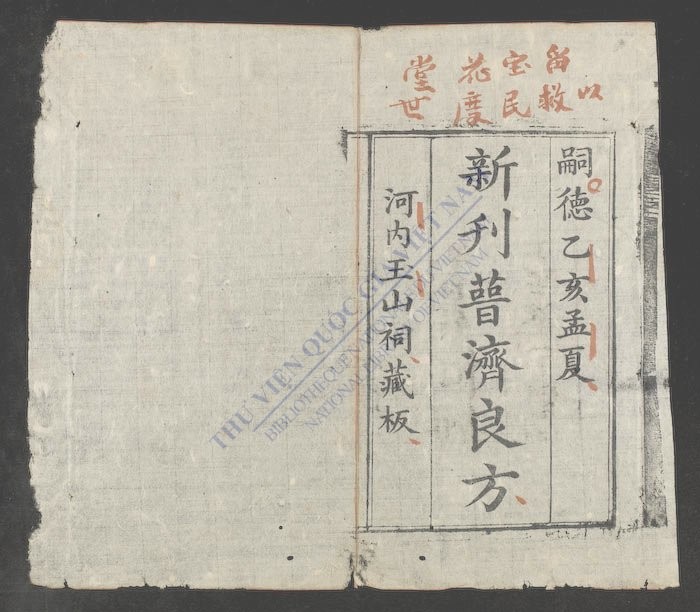 畄宝花堂
以救民度世
嗣德乙亥孟夏
新刋普濟良方
河内玉山祠藏板
THƯ VIỆN QUỐC GIA VIỆT NAM
BIBLIOTHÈQUE NATIONALE DU VIETNAM
NATIONAL LIBRARY OF VIETNAM